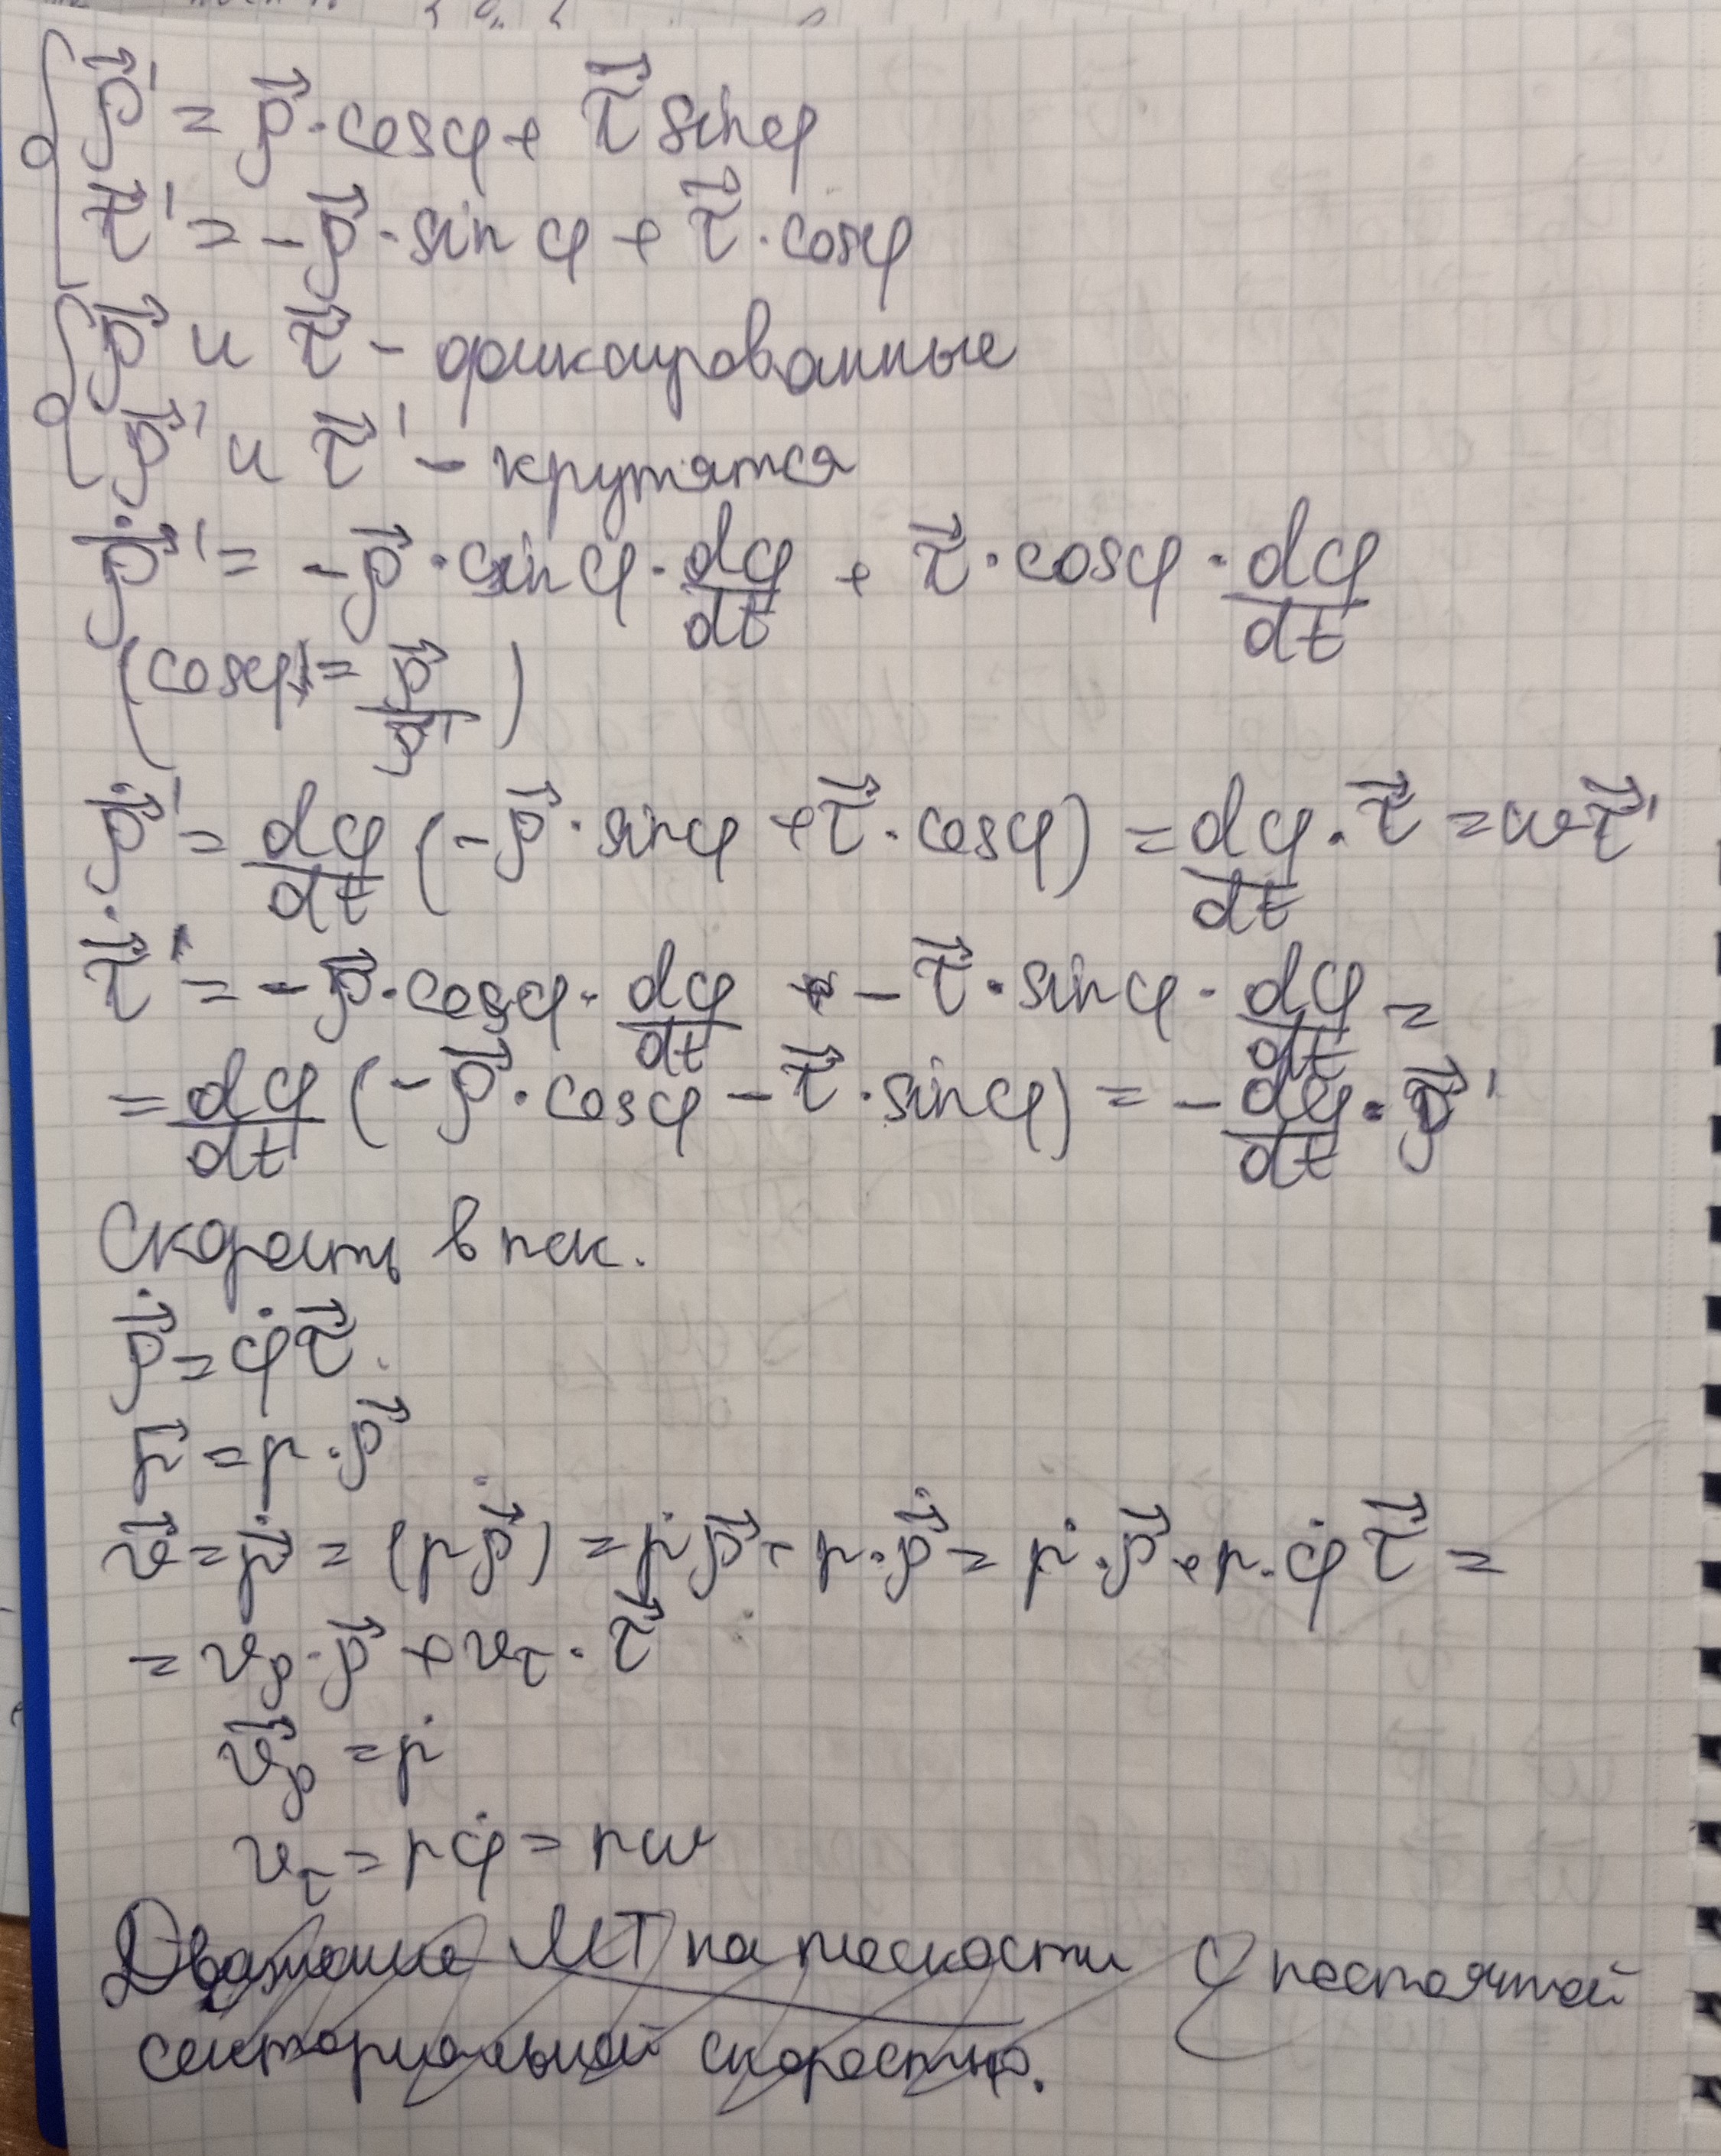 ρ⃗' = ρ⃗ · cosφ + τ⃗ sinφ
τ⃗' = -ρ⃗ · sin φ + τ⃗ · cosφ
ρ⃗ и τ⃗ - фиксированные
ρ⃗' и τ⃗' - крутятся
ρ⃗̇' = -ρ⃗ · sin φ · dφ/dt + τ⃗ · cosφ · dφ/dt
(cosφ = ρ⃗/ρ⃗')
ρ⃗̇' = dφ/dt (-ρ⃗ · sinφ + τ⃗ · cosφ) = dφ/dt · τ⃗ = ωτ⃗'
τ⃗̇' = -ρ⃗ · cosφ · dφ/dt - τ⃗ · sinφ · dφ/dt =
= dφ/dt (-ρ⃗ · cosφ - τ⃗ · sinφ) = - dφ/dt · ρ⃗'
Скорость в пск.
ρ⃗̇ = φ̇τ⃗
r⃗ = r · ρ⃗
v⃗ = r⃗̇ = (rρ⃗)̇ = ṙρ⃗ + r · ρ⃗̇ = ṙ · ρ⃗ + r · φ̇τ⃗ =
= vρ · ρ⃗ + vτ · τ⃗
v⃗ρ = ṙ
vτ = rφ̇ = rω
Движение МТ на плоскости с постоянной
секториальной скоростью.